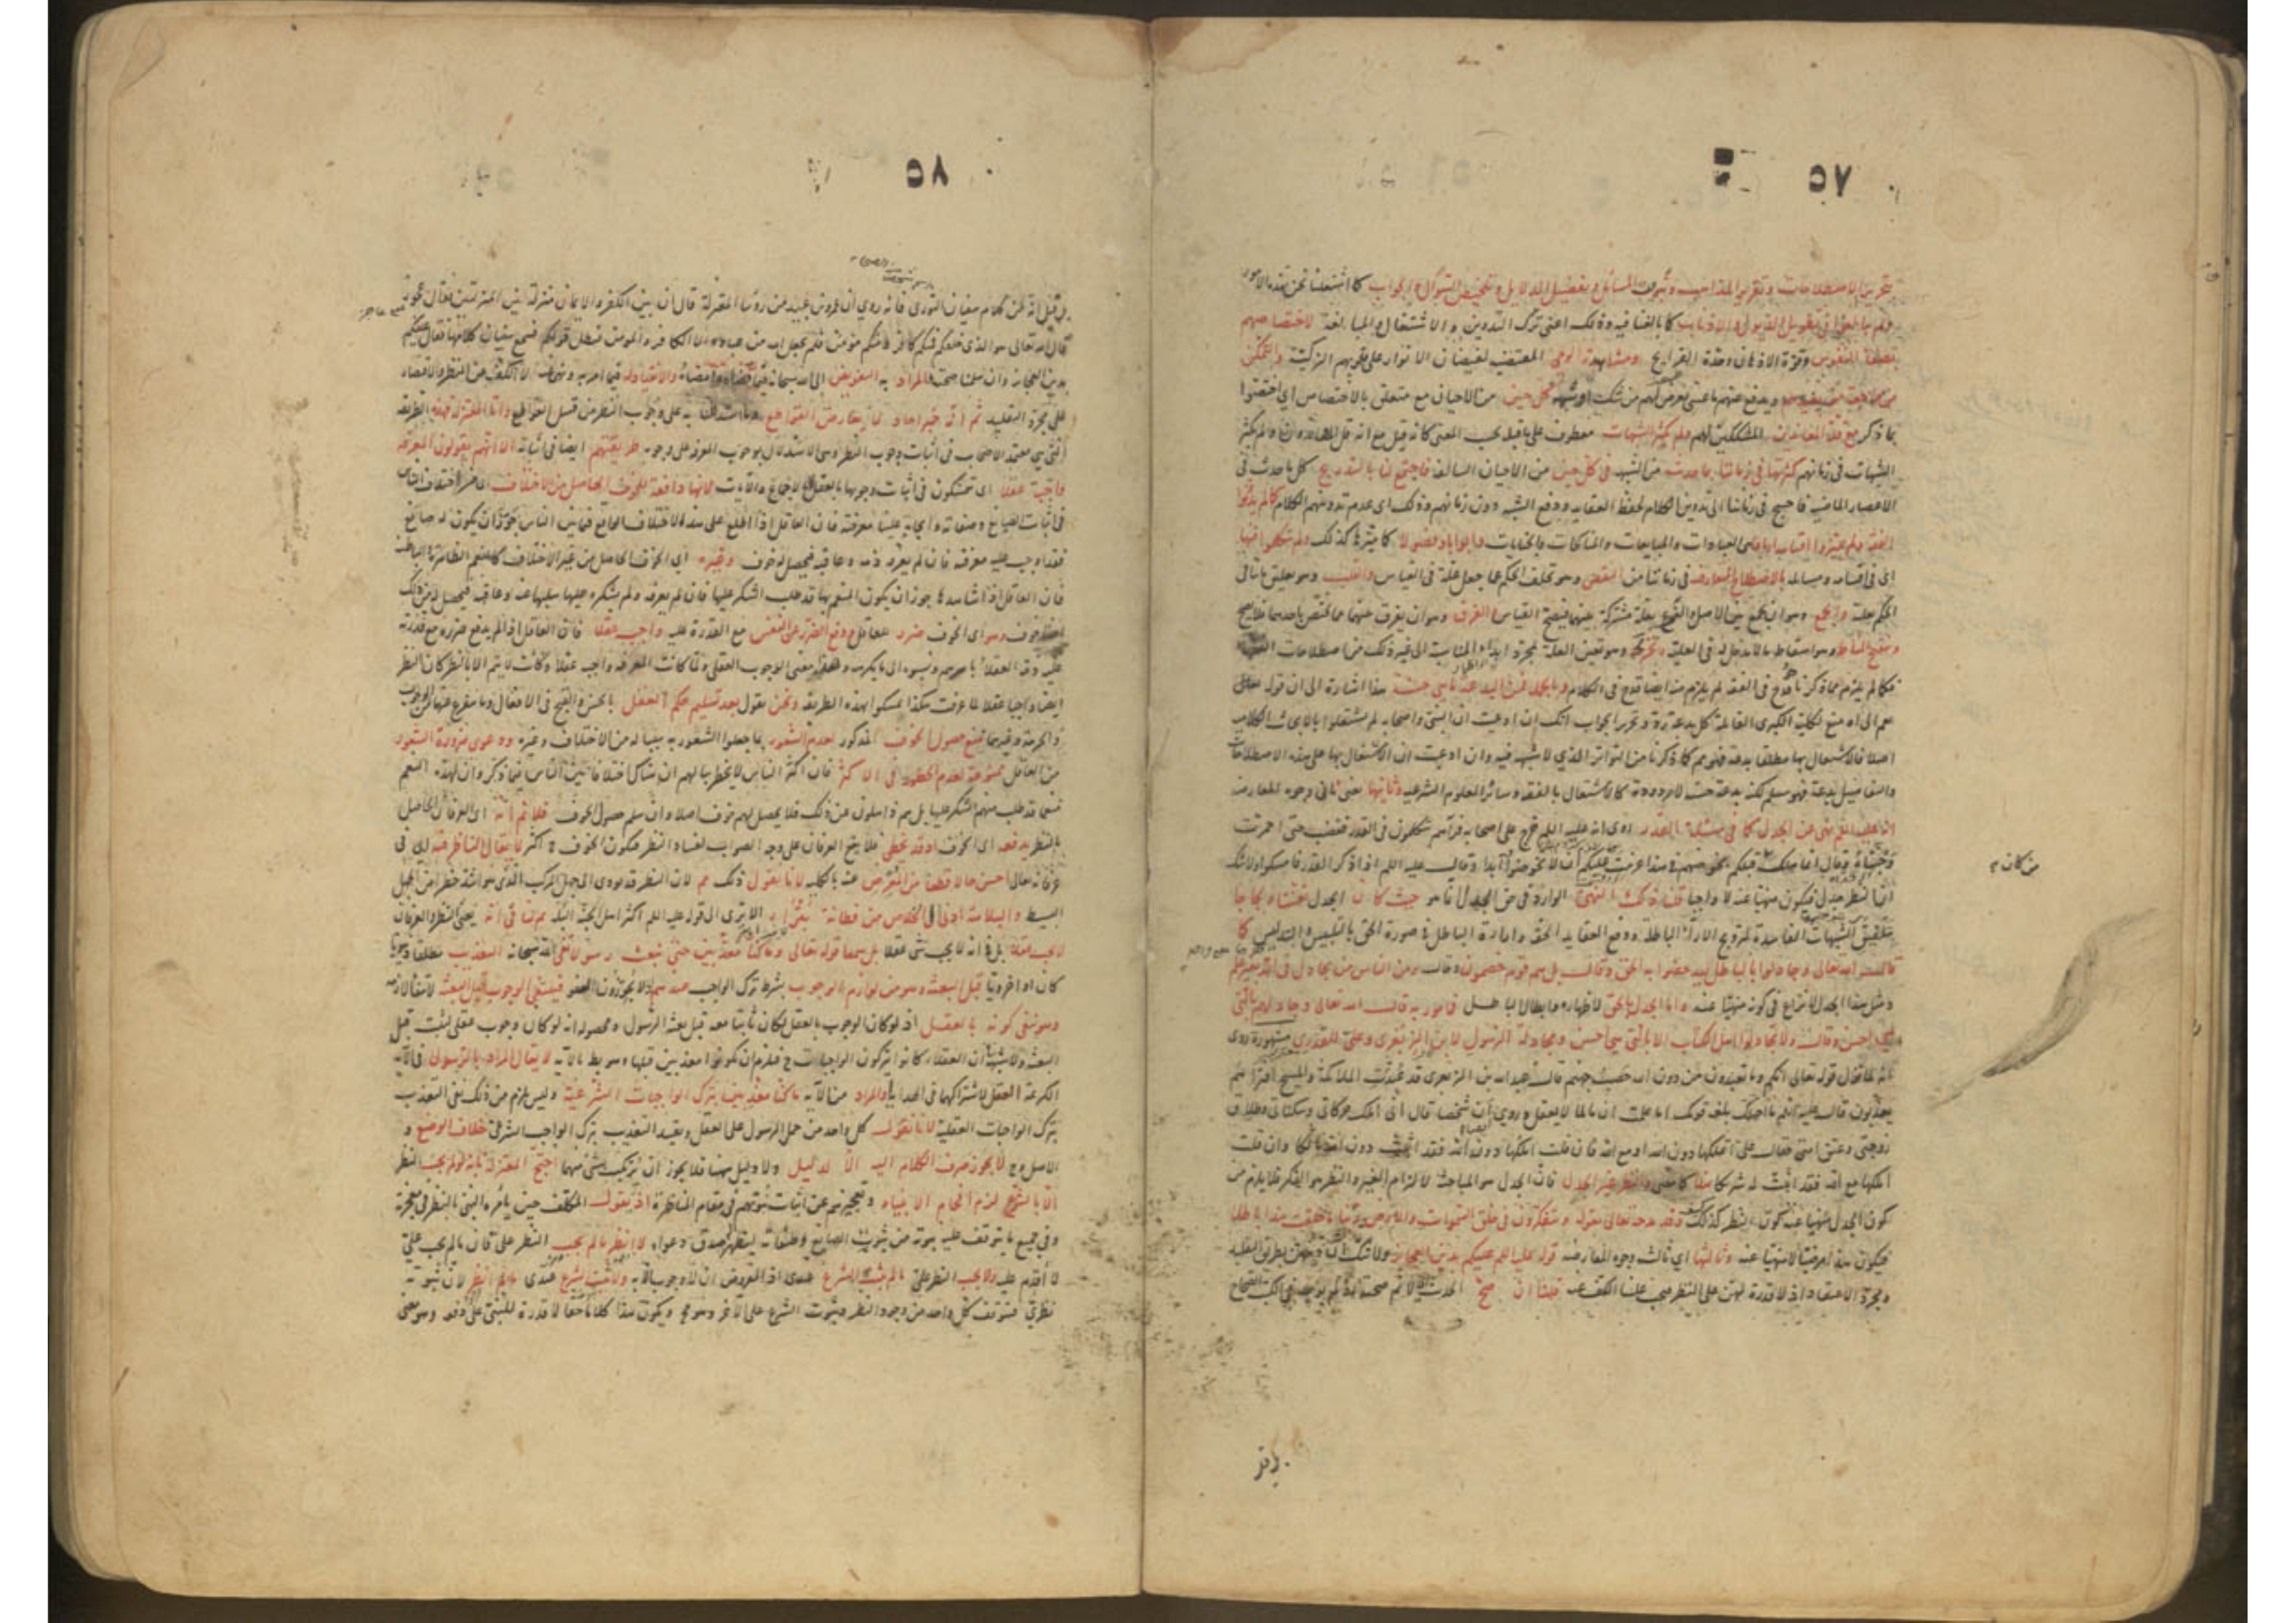 ٥٧
تحرير الاصطلاحات وتقرير المذاهب وتبويب المسائل وتفصيل الدلائل وتلخيص السؤال والجواب كما اشتغلنا نحن بهذه الامور
ولم يبالغوا في تطويل الذيول والاذناب كما بالغنا فيه وذلك اعني ترك التدوين والاشتغال والمبالغة لاختصاصهم
بصفاء النفوس وقوة الاذهان وحدة القرايح ومشاهدة الوحي المقتضية لفيضان الانوار على قلوبهم الزكية والتمكن
من مراجعة من يفيدهم ويدفع عنهم ما عسى يعرض لهم من شك او شبهة كل حين من الاحيان مع متعلق بالاختصاص اي اختصوا
بما ذكر مع قلة المعاندين المشككين لهم ولم يكثر الشبهات معطوف على ما قبله بحسب المعنى كانه قيل مع انه قل المعاندون ولم يكثر
الشبهات في زمانهم كثرتها في زماننا بما حدث من الشبه في كل حين من الاحيان السالفة فاجتمع لنا بالتدريج كل ما حدث في
الاعصار الماضية فاحتيج في زماننا الى تدوين الكلام لحفظ العقايد ودفع الشبه دون زمانهم وذلك اي عدم تدوينهم الكلام كما لم يدونوا
الفقه ولم يميزوا اقسامه ارباعا هي العبادات والمبايعات والمناكحات والجنايات وابوابا وفصولا كما ميزناها كذلك ولم يتكلموا فيها
اي في اقسامه ومسائله بالاصطلاح المتعارف في زماننا من النقض وهو تخلف الحكم عما جعل علة في القياس والقلب وهو تعليق ما ينافي
الحكم بعلته والجمع وهو ان يجمع بين الاصل والفرع بعلة مشتركة بينهما فيصح القياس والفرق وهو ان يفرق بينهما بما يختص باحدهما فلا يصح
وتنقيح المناط وهو اسقاط ما لا مدخل له في العلية وتخريجه وهو تعيين العلة بمجرد ابداء المناسبة الى غير ذلك من اصطلاحات الفقهاء
فكما لم يلزم مما ذكرنا قدح في الفقه لم يلزم منه ايضا قدح في الكلام وبالجملة فمن البدعة ما هي حسنة هذا اشارة الى ان قوله
الى اه منع لكلية الكبرى القائلة كل بدعة رد وتحرير الجواب انك ان ادعيت ان النبي واصحابه لم يشتغلوا بالابحاث الكلامية
اصلا فالاشتغال بها مطلقا بدعة فهو مم كما ذكرنا من التواتر الذي لا شبهة فيه وان ادعيت ان الاشتغال بها على هذه الاصطلاحات
والتفاصيل بدعة فهو مسلم لكنه بدعة حسنة لا مردودة كالاشتغال بالفقه وسائر العلوم الشرعية وثانيها يعني ثاني وجوه المعارضة
انه عليه السلم نهى عن الجدل كما في مسئلة القدر روي انه عليه السلم خرج على اصحابه فرآهم يتكلمون في القدر فغضب حتى احمرت
وجنتاه وقال انما هلك من كان قبلكم لخوضهم في هذا عزمت عليكم ان لا تخوضوا فيه ابدا وقال عليه السلم اذا ذكر القدر فامسكوا ولا شك
ان النظر جدل فيكون منهيا عنه لا واجبا قلنا ذلك النهي الوارد عن الجدل انما هو حيث كان الجدل تعنتا ولجاجا
بتلفيق الشبهات الفاسدة لترويج الآراء الباطلة ودفع العقايد الحقة واراءة الباطل في صورة الحق بالتلبيس والتدليس كما
قال الله تعالى وجادلوا بالباطل ليدحضوا به الحق وقال بل هم قوم خصمون وقال ومن الناس من يجادل في الله بغير علم
ومثل هذا الجدل لا نزاع في كونه منهيا عنه واما الجدل بالحق لاظهاره وابطال الباطل فمامور به قال الله تعالى وجادلهم بالتي
هي احسن وقال ولا تجادلوا اهل الكتاب الا بالتي هي احسن ومجادلة الرسول لابن الزبعرى وعلي للقدري مشهورة روى
انه لما نزل قوله تعالى انكم وما تعبدون من دون الله حصب جهنم قال عبد الله بن الزبعرى قد عبدت الملائكة والمسيح افتراهم
يعذبون قال عليه السلم ما اجهلك بلغة قومك اما علمت ان ما لما لا يعقل وروي ان شخصا قال اني املك حركاتي وسكناتي وطلاق
زوجتي وعتق امتي فقال علي املكها دون الله او مع الله فان قلت املكها دون الله فقد اثبت دون الله مالكا وان قلت
املكها مع الله فقد اثبت له شريكا هذا كما مضى والنظر غير الجدل فان الجدل هو المباحثة لالزام الغير والنظر هو الفكر فلا يلزم من
كون الجدل منهيا عنه كون النظر كذلك وقد مدحه تعالى بقوله ويتفكرون في خلق السموات والارض ربنا ما خلقت هذا باطلا
فيكون هذا مرضيا لا منهيا عنه وثالثها اي ثالث وجوه المعارضة قوله عليه السلم عليكم بدين العجايز ولا شك ان دينهن بطريق التقليد
ومجرد الاعتقاد اذ لا قدرة لهن على النظر فيجب علينا الكف عنه قلنا ان صح الحديث اي لا نم صحته اذ لم يوجد في الكتب الصحاح
من كان
٥٨
بل قيل انه من كلام سفيان الثوري فانه روي ان عمرو بن عبيد من رؤسا المعتزلة قال ان بين الكفر والايمان منزلة بين المنزلتين فقال عجوز
قال الله تعالى هو الذي خلقكم فمنكم كافر ومنكم مؤمن فلم يجعل الله من عباده الا الكافر والمؤمن فبطل قولكم فسمع سفيان كلامها فقال عليكم
بدين العجايز وان سلمنا صحته فالمراد به التفويض الى الله سبحانه فيما قضاه وامضاه والانقياد له فيما امر به ونهى عنه لا الكف عن النظر والاقتصار
على مجرد التقليد ثم انه خبر احاد لا يعارض القواطع وما استدللنا به على وجوب النظر من قبيل القواطع واما المعتزلة فهذه الطريقة
التي هي معتمد الاصحاب في اثبات وجوب النظر وهي الاستدلال بوجوب المعرفة على وجوبه طريقتهم ايضا في اثباته الا انهم يقولون المعرفة
واجبة عقلا اي يتمسكون في اثبات وجوبها بالعقل لا بالاجماع والآيات لانها دافعة للخوف الحاصل من الاختلاف اي من اختلاف الناس
في اثبات الصانع وصفاته وايجابه علينا معرفته فان العاقل اذا اطلع على هذا الاختلاف الواقع فيما بين الناس جوز ان يكون له صانع
قد اوجب عليه معرفته فان لم يعرفه ذمه وعاقبه فيحصل له خوف وغيره اي الخوف الحاصل من غير الاختلاف كالنعم الظاهرة والباطنة
فان العاقل اذا شاهدها جوز ان يكون المنعم بها قد طلب الشكر عليها فان لم يعرفه ولم يشكره عليها سلبها عنه وعاقبه فيحصل له من ذلك
ايضا خوف وهو اي الخوف ضرر للعاقل ودفع الضرر عن النفس مع القدرة عليه واجب عقلا فان العاقل اذا لم يدفع ضرره مع قدرته
عليه ذمه العقلا باسرهم ونسبوه الى ما يكرهه وهذا معنى الوجوب العقلي ولما كانت المعرفة واجبة عقلا وكانت لا يتم الا بالنظر كان النظر
ايضا واجبا عقلا لما عرفت هكذا تمسكوا بهذه الطريقة ونحن نقول بعد تسليم حكم العقل بالحسن والقبح في الافعال وما يتفرع عنها من الوجوب
والحرمة وغيرهما نمنع حصول الخوف المذكور لعدم الشعور بما جعلوا الشعور به سببا له من الاختلاف وغيره ودعوى ضرورة الشعور
من العاقل ممنوعة لعدم الخطور في الاكثر فان اكثر الناس لا يخطر ببالهم ان هناك اختلافا بين الناس فيما ذكر وان لهذه النعم
منعما قد طلب منهم الشكر عليها بل هم ذاهلون عن ذلك فلا يحصل لهم خوف اصلا وان سلم حصول الخوف فلا نم انه اي العرفان الحاصل
بالنظر يدفعه اي الخوف اذ قد يخطي فلا يقع العرفان على وجه الصواب لفساد النظر فيكون الخوف ح اكثر لا يقال الناظر فيه اي في
عرفانه تعالى احسن حالا قطعا من المعرض عنه بالكلية لانا نقول ذلك مم لان النظر قد يؤدي الى الجهل المركب الذي هو اشد خطرا من الجهل
البسيط والبلاهة ادنى الى الخلاص من فطانة بتراء الا ترى الى قوله عليه السلم اكثر اهل الجنة البله ثم لنا في انه يعني النظر والعرفان
لا يجب عقلا بل في انه لا يجب شي عقلا بل سمعا قوله تعالى وما كنا معذبين حتى نبعث رسولا نفى الله سبحانه التعذيب مطلقا دنيويا
كان او اخرويا قبل البعثة وهو من لوازم الوجوب بشرط ترك الواجب عندهم اذ لا يجوزون العفو فينتفي الوجوب قبل البعثة لانتفاء لازمه
وهو ينفي كونه بالعقل اذ لو كان الوجوب بالعقل لكان ثابتا معه قبل بعثة الرسول ومحصوله انه لو كان وجوب عقلي لثبت قبل
البعثة ولا شبهة ان العقلاء كانوا يتركون الواجبات ح فيلزم ان يكونوا معذبين قبلها وهو بط بالآية لا يقال المراد بالرسول في الآية
الكريمة العقل لاشتراكهما في الهداية او المراد من الآية ما كنا معذبين بترك الواجبات الشرعية وليس يلزم من ذلك نفي التعذيب
بترك الواجبات العقلية لانا نقول كل واحد من حمل الرسول على العقل وتقييد التعذيب بترك الواجب الشرعي خلاف الوضع و
الاصل وح لا يجوز صرف الكلام اليه الا لدليل ولا دليل هنا فلا يجوز ان يرتكب شي منهما احتج المعتزلة بانه لو لم يجب النظر
الا بالشرع لزم افحام الانبياء وتعجيزهم عن اثبات نبوتهم في مقام المناظرة اذ يقول المكلف حين يأمره النبي بالنظر في معجزته
وفي جميع ما يتوقف عليه نبوته من ثبوت الصانع وصفاته ليظهر صدق دعواه لا انظر ما لم يجب النظر علي فان ما لم يجب علي
لا اقدم عليه ولا يجب النظر علي ما لم يثبت الشرع عندي اذ المفروض ان لا وجوب الا به ولا يثبت الشرع عندي ما لم انظر لان ثبوته
نظري فيتوقف كل واحد من وجوب النظر وثبوت الشرع على الآخر وهو مح ويكون هذا كلاما حقا لا قدرة للنبي على دفعه وهو معنى